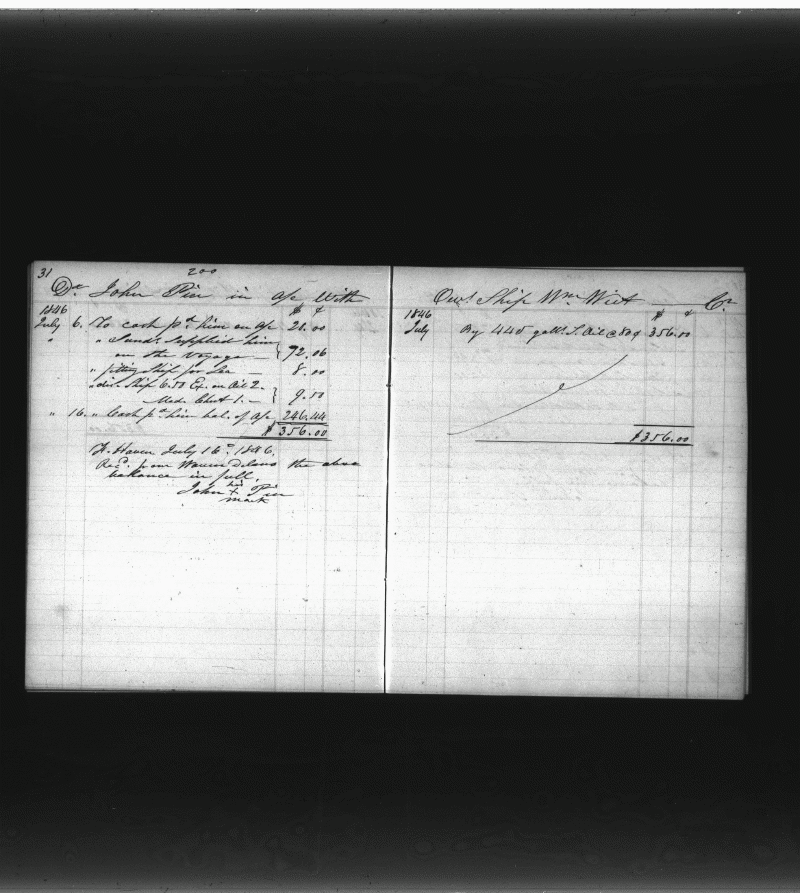 31
200
Dr. John Pin in a/c With
1846 $ ¢
July 6. To cash pd. him on a/c 20.00
" " Sunds. supplied him
on the voyage — } 72.06
" fitting Ship for Sea — 8.00
" dis. Ship 6.50 Ex. on Oil 2.
Med. Chest 1. — } 9.50
" 16. " Cash pd. him bal. of a/c 246.44
$ 356.00
F. Haven July 16th. 1846.
Recd. from Warren Delano the above
balance in full,
his
John X Pin
mark
Owrs. Ship Wm. Wirt Cr.
1846 $ ¢
July By 445 galls. S. Oil @ 80¢ 356.00
$356.00